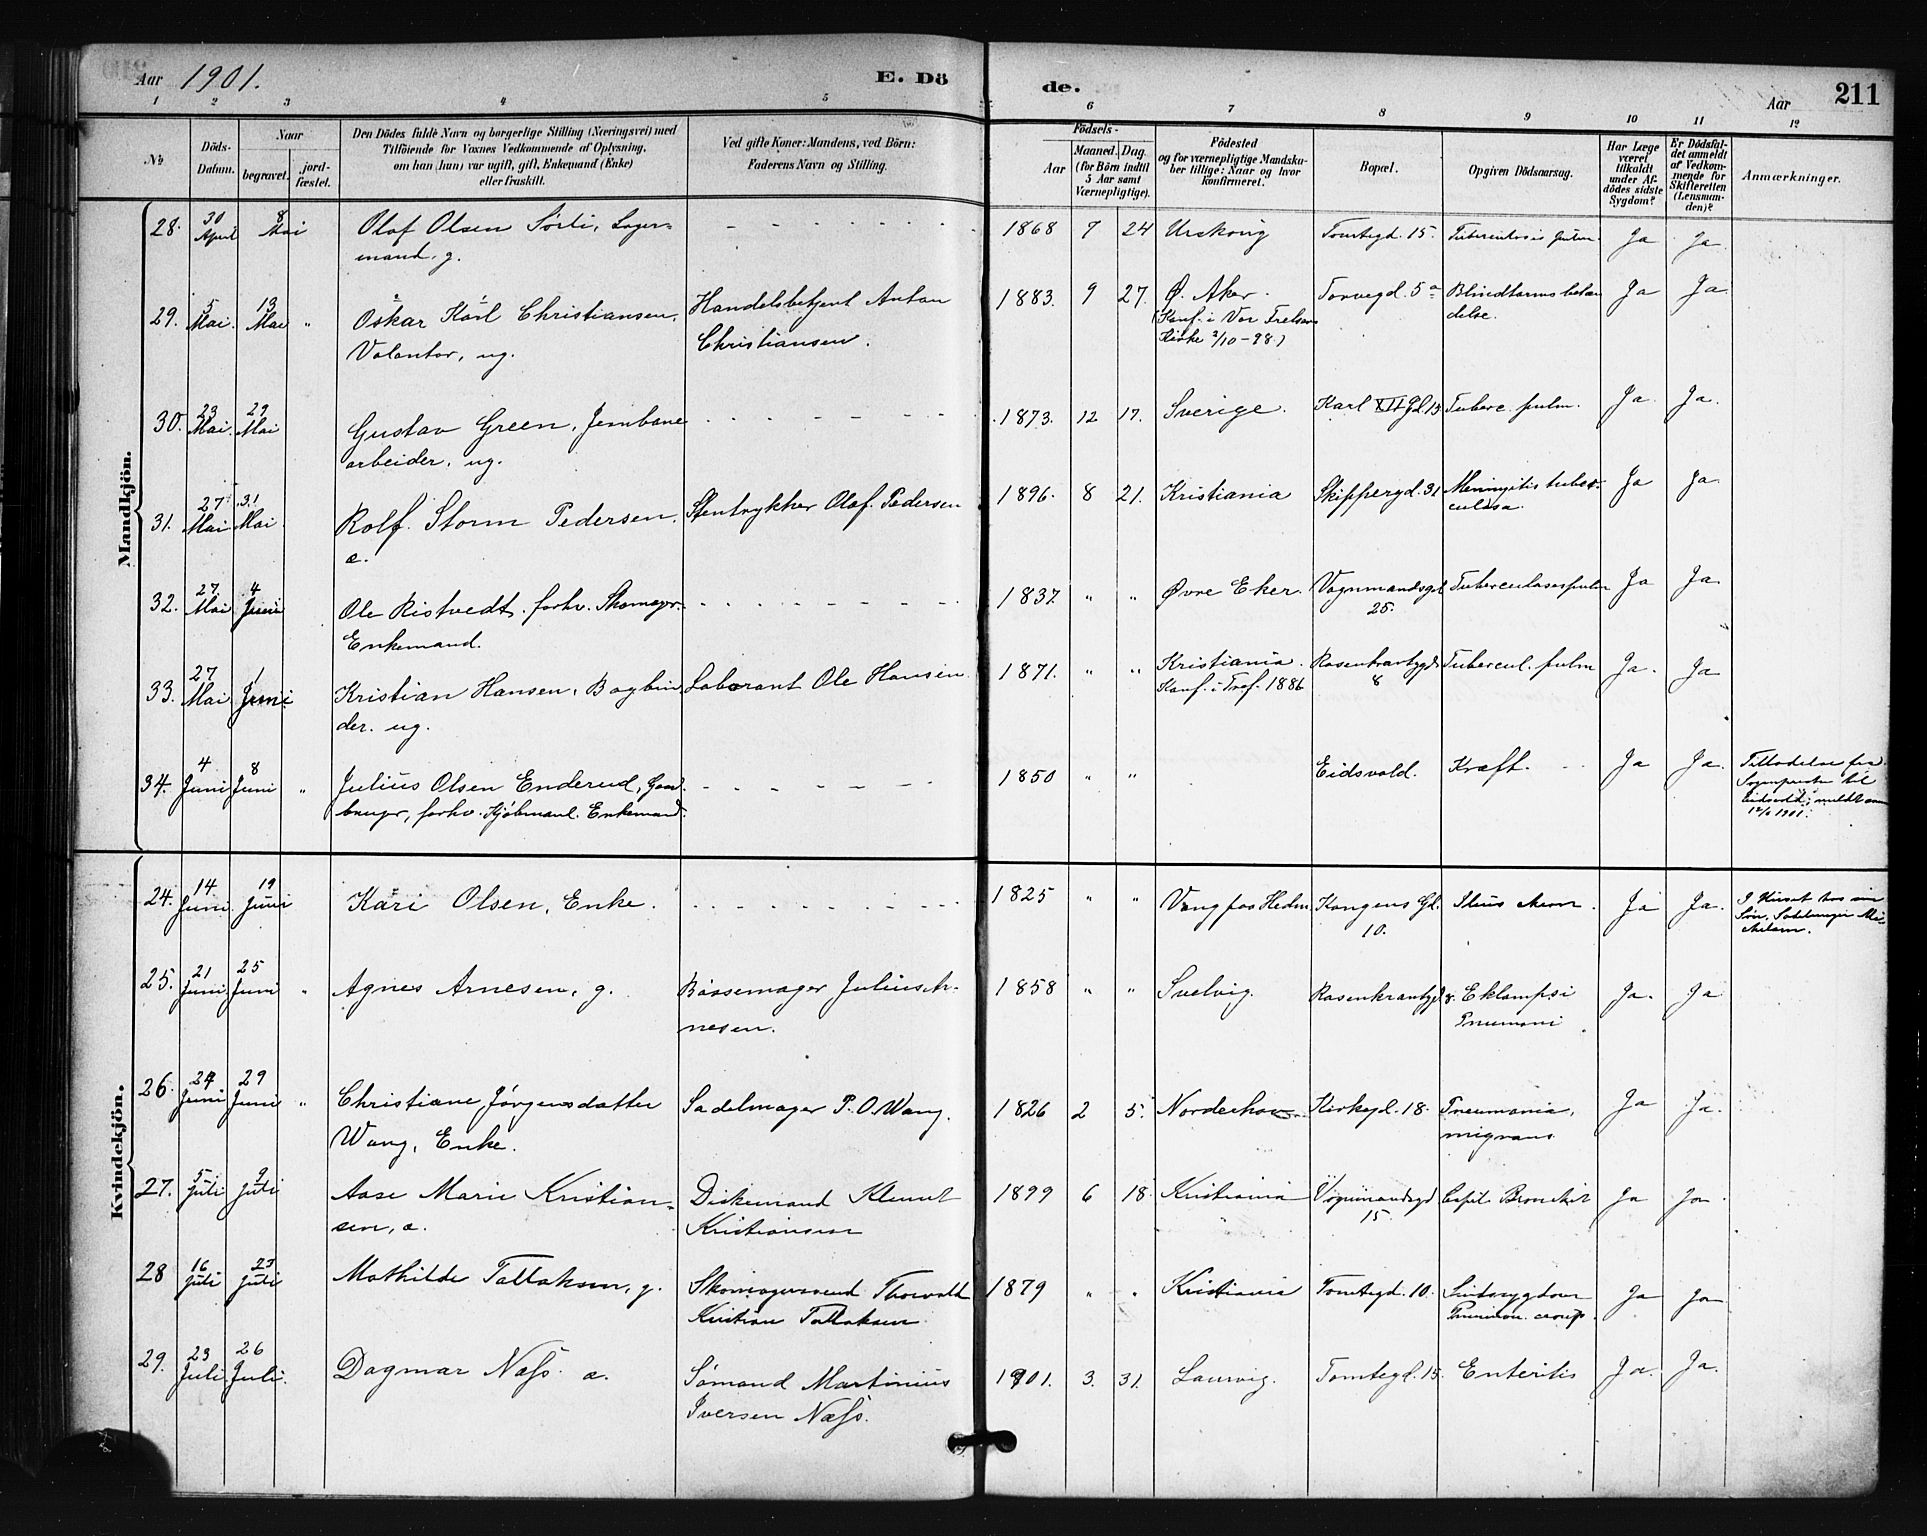 Aar 1901. E. Dö
de. Aar 211
1 2 3 4 5
6 7 8 9 10 11 12
No
Döds-
Datum.
Naar
begravet.
jord-
fæstet.
Den Dödes fulde Navn og borgerlige Stilling (Næringsvei) med
Tilföiende for Voxnes Vedkommende af Oplysning,
om han (hun) var ugift, gift, Enkemand (Enke)
eller fraskilt.
Ved gifte Koner: Mandens, ved Börn:
Faderens Navn og Stilling.
Födsels-
Aar
Maaned. Dag.
(for Börn indtil
5 Aar samt
Værnepligtige).
Födested
og for værnepligtige Mandska-
ber tillige: Naar og hvor
konfirmeret.
Bopæl.
Opgiven Dödsaarsag.
Har Læge
været
tilkaldt
under Af-
dödes sidste
Sygdom?
Er Dödsfal-
det anmeldt
af Vedkom-
mende for
Skifteretten
(Lensman-
den)?
Anmærkninger.
Mandkjön.
28. 30 April 8 Mai Olaf Olsen Sörli, Lager-
mand. g.
1868 7 24 Urskoug Tomtegd. 15. Tuberculosis pulm. Ja Ja
29. 5 Mai. 13 Mai " Oskar Karl Christiansen,
Volontør, ug.
Handelsbetjent Anton
Christiansen.
1883. 9 27. Ø. Aker.
(Konf. i Vor Frelsers
Kirke 2/10-98.)
Torvegd. 5a Blindtarmsbetæn
delse. Ja Ja
30. 23 Mai. 29 Mai Gustav Green, Jernbane
arbeider, ug.
1873. 12 17. Sverige. Karl XII Gd. 13 Tuberc. pulm. Ja Ja.
31. 27 Mai 31 Mai Rolf Storm Pedersen.
a.
Stentrykker Olaf Pedersen
1896. 8 21. Kristiania Skippergd. 31 Meningitis tuber-
culosa. Ja Ja
32. 27 Mai 4 Juni Ole Ristvedt. forhv. Skomager.
Enkemand.
1837. " " Øvre Eker. Vognmandsgd
25. Tuberculosis pulm Ja Ja
33. 27 Mai 1 Juni Kristian Hansen, Bogbin
der. ug.
Laborant Ole Hansen.
1871. " " Kristiania.
Konf. i Tref. 1886
Rosenkrantzgd.
8 Tubercul. pulm Ja. Ja
34. 4 Juni 8 Juni " Julius Olsen Enderud, Gaard
bruger, forhv. Kjøbmand. Enkemand.
1850 " " Eidsvold. Kræft. Ja Ja.
Tilladelse fra
Sognepresten til
Eidsvold; meldt
1901.
Kvindekjön.
24. 14 Juni 19 Juni Kari Olsen, Enke.
1825 " " Vang paa Hedm. Kongens Gd.
10. Ileus Ja Ja.
I Huset hos sin
Søn, Sadelmager
25. 21 Juni. 25 Juni " Agnes Arnesen, g.
Bøssemager Julius Ar-
nesen.
1858 " " Svelvig. Rosenkrantzgd 8. Eklampsi
Pneumoni Ja. Ja
26. 24 Juni 29 Juni " Christiane Jörgensdatter
Wang, Enke.
Sadelmager P. O. Wang.
1826 2 5. Norderhov Kirkegd. 18. Pneumonia,
migrans Ja Ja.
27. 5 Juli 9 Juli Aase Marie Kristian-
sen, a.
Diskemand Klemet
Kristiansen
1899 6 18. Kristiania Vognmandsgd
15. Capil. Bronchit Ja Ja.
28 16 Juli 23 Juli Mathilde Tallaksen, g.
Skomagersvend Thorvald
Kristian Tallaksen.
1879 " " Kristiania Tomtegd. 10. Sindssygdom
Pneumon. croup. Ja Ja
29. 23 Juli. 26 Juli. Dagmar Næss. a.
Sømand Martinius
Iversen Næss.
1901. 3. 31. Laurvig. Tomtegd. 15. Enteritis Ja. Ja.